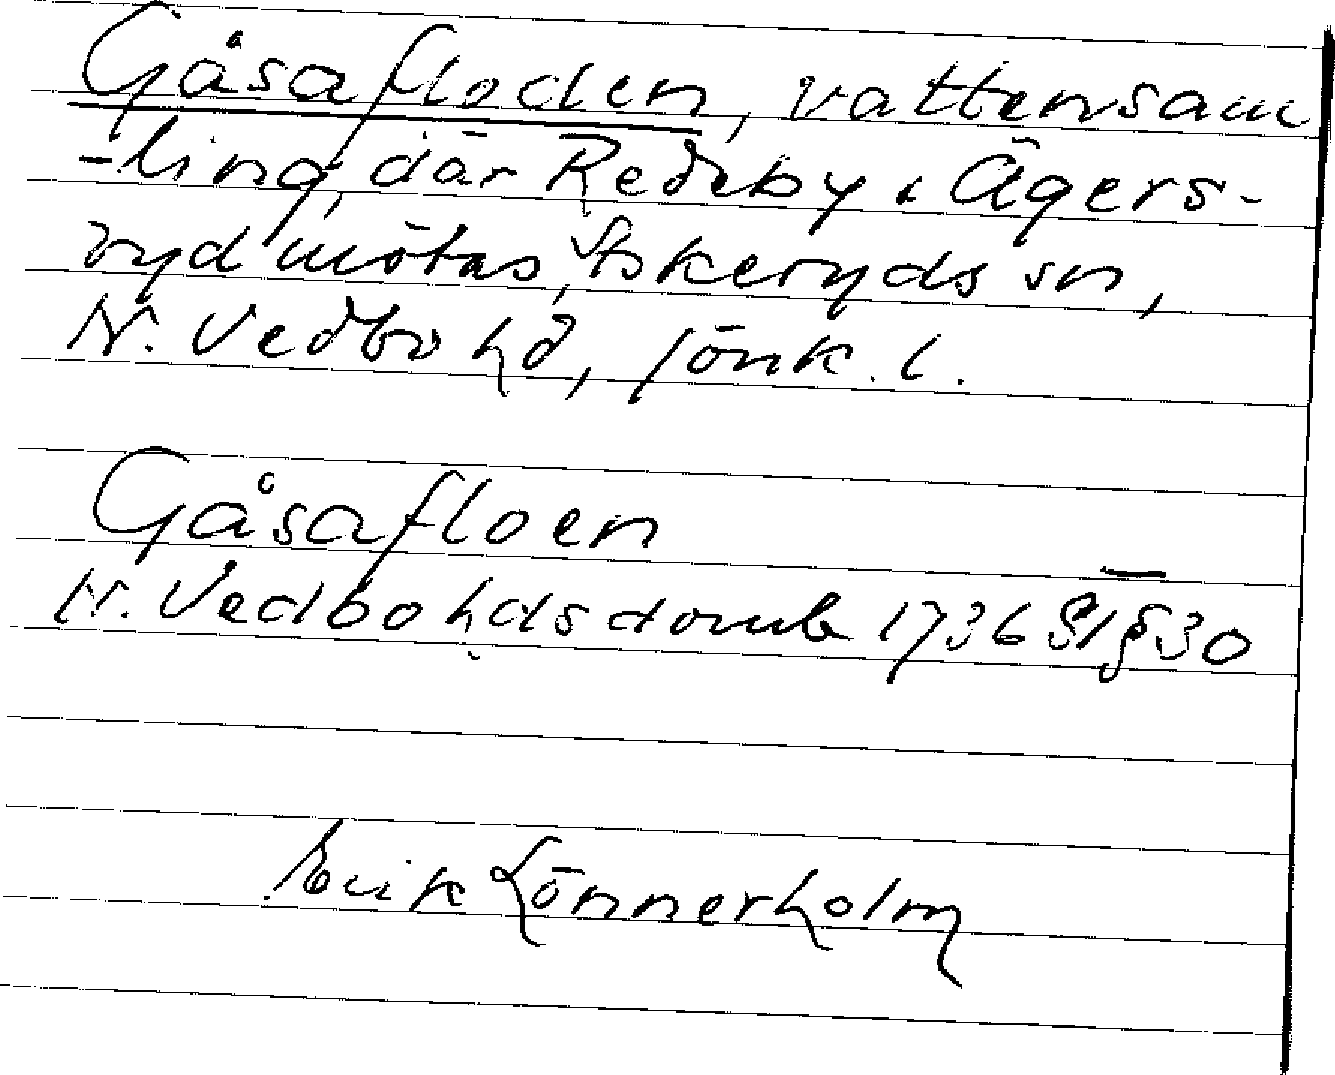 Gåsafloden, vattensam
-ling, där Redeby & Ägers-
ryd mötas, Askeryds sn,
N. Vedbo hd, Jönk. l.
Gåsafloen
N. Vedbo hds domb 1736 § 30
Erik Lönnerholm